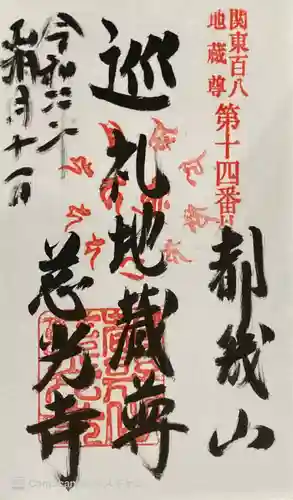 関東百八
地蔵尊
第十四番
都幾山
巡礼地蔵尊
慈光寺
令和六年
正月十一日